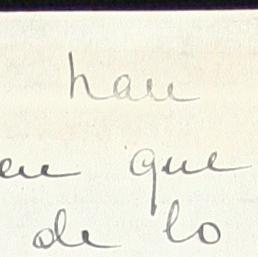 han
en que
de lo